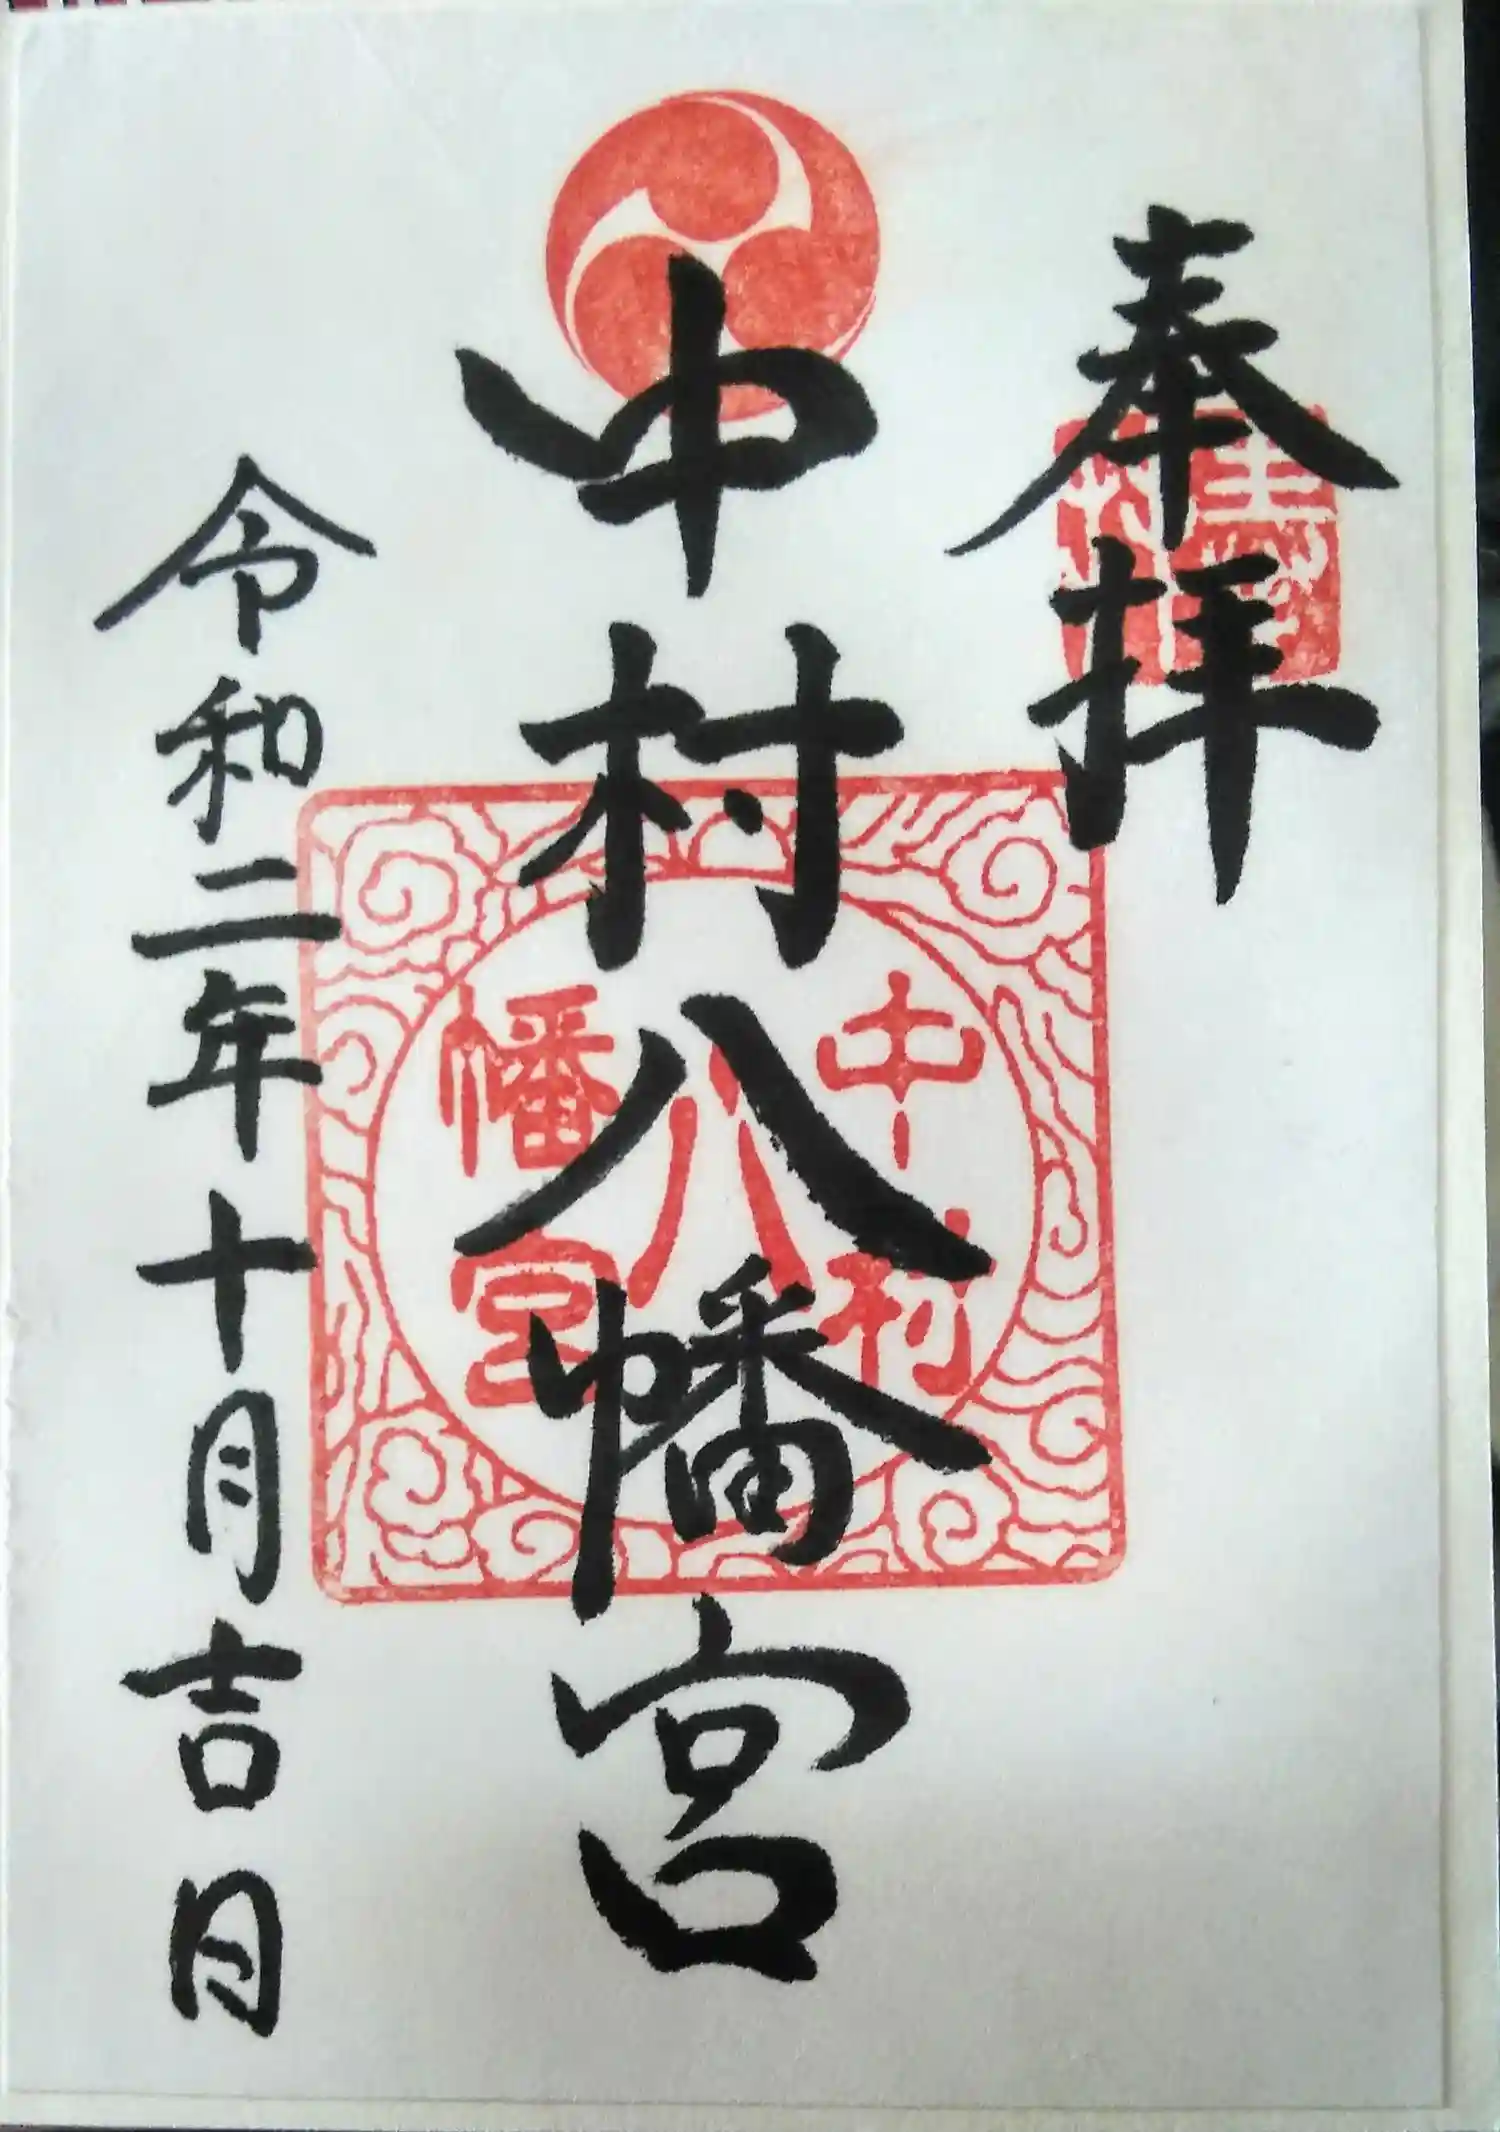 奉拝
中村八幡宮
中村
八
幡宮
令和二年十月吉日